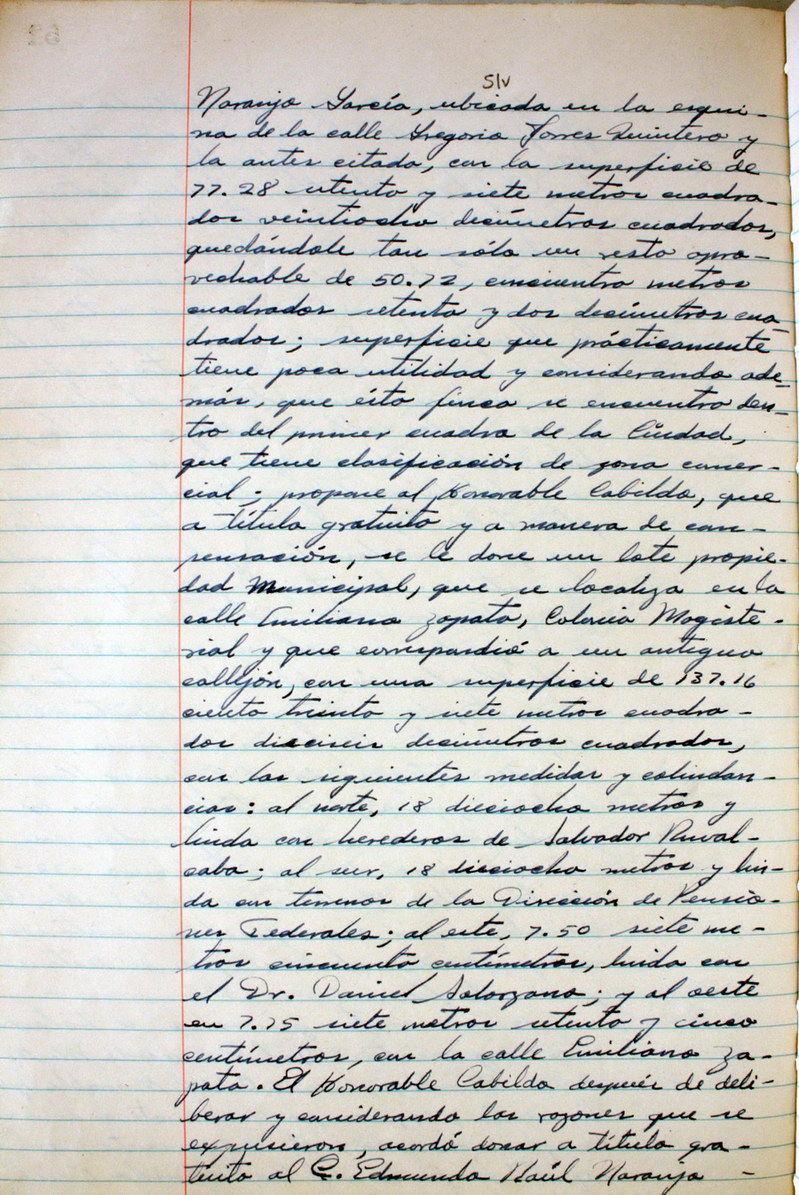 S/v
Naranjo García, ubicada en la esqui-
na de la calle Gregorio Torres Quintero y
la antes citada, con la superficie de
77.28 setenta y siete metros cuadra-
dos veintiocho decímetros cuadrados,
quedándole tan sólo un resto apro-
vechable de 50.72, cincuenta metros
cuadrados setenta y dos decímetros cua
drados; superficie que prácticamente
tiene poca utilidad y considerando ade-
más, que ésta finca se encuentra den-
tro del primer cuadro de la Ciudad,
que tiene clasificación de zona comer-
cial; propone al Honorable Cabildo, que
a título gratuito y a manera de com-
pensación, se le done un lote propie-
dad Municipal, que se localiza en la
calle Emiliano Zapata, Colonia Magiste-
rial y que correspondió a un antiguo
callejón, con una superficie de 137.16
ciento treinta y siete metros cuadra-
dos dieciseis decímetros cuadrados,
con las siguientes medidas y colindan-
cias: al norte, 18 dieciocho metros y
linda con herederos de Salvador Ruval-
caba; al sur, 18 dieciocho metros y lin-
da con terrenos de la Dirección de Pensio-
nes Federales; al este, 7.50 siete me-
tros cincuenta centímetros, linda con
el Dr. Daniel Solorzano; y al oeste
en 7.75 siete metros setenta y cinco
centímetros, con la calle Emiliano Za-
pata. El Honorable Cabildo después de deli-
berar y considerando las razones que se
expusieron, acordó donar a título gra-
tuito al C. Edmundo Raúl Naranjo -